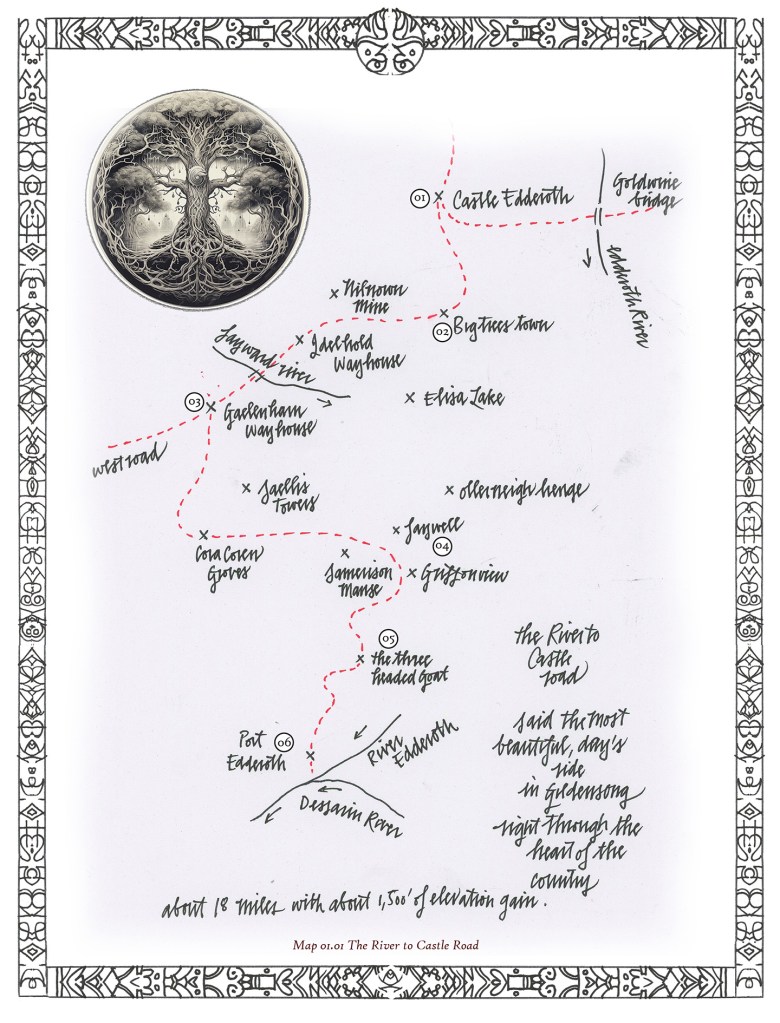 01
Castle Edderoth
Goldwine
bridge
Edderoth River
Nifnown
Mine
02
Bigtrees town
Idelhold
Wayhouse
Jayward river
03
Gaelenham
Wayhouse
Elisa Lake
west road
Jaellis
Towers
ollerneigh henge
Jaywell
04
Cora Coren
Groves
Jamerison
Manse
Griffonview
05
the three
headed Goat
the River to
Castle
road
Port
Edderoth
06
River
Edderoth
Dessarin River
said the most
beautiful, day's
ride
in Gildensong
right through the
heart of the
country
about 18 miles with about 1,500' of elevation gain.
Map 01.01 The River to Castle Road